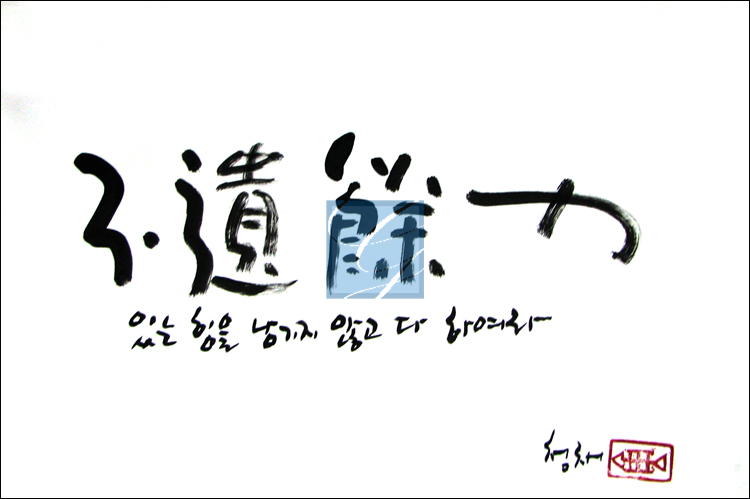 不遺餘力
있는 힘을 남기지 않고 다 하여라
청채